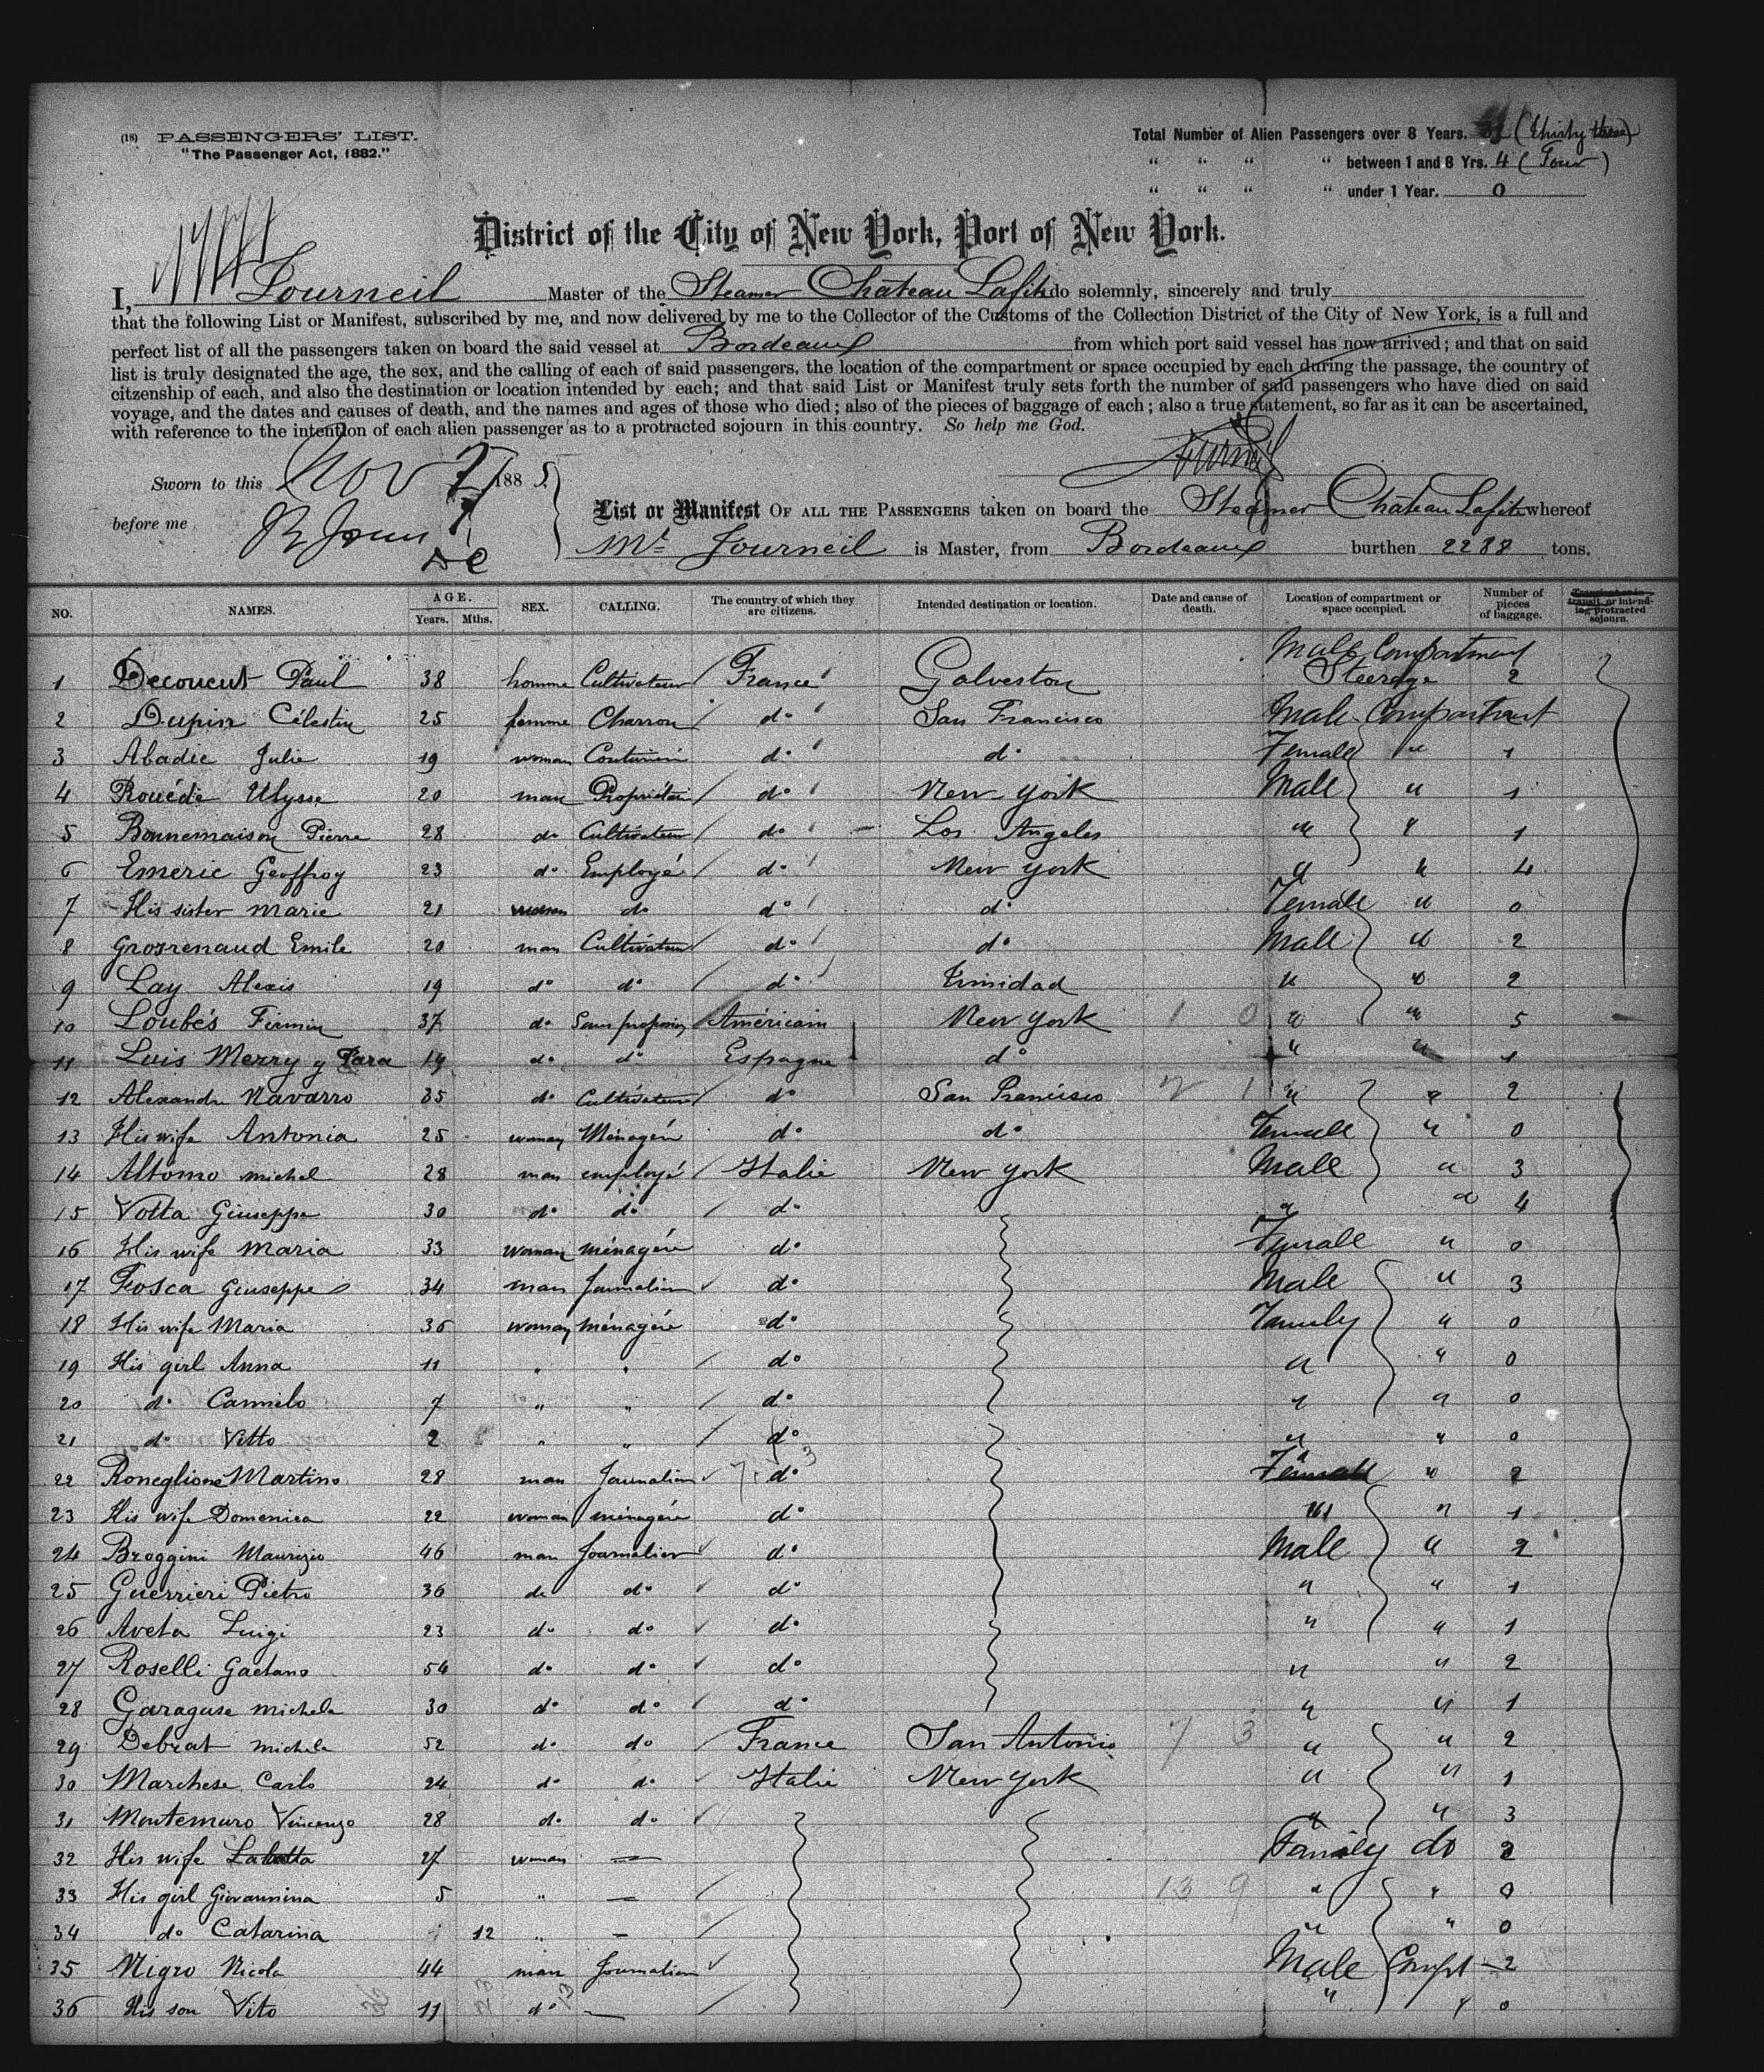 (18) PASSENGERS' LIST.
"The Passenger Act, 1882."
Total Number of Alien Passengers over 8 Years. (Thirty three)
" " " " between 1 and 8 Yrs. 4 (Four)
" " " " under 1 Year. 0
District of the City of New York, Port of New York.
I, Fourneil Master of the Steamer Château Lafite do solemnly, sincerely and truly
that the following List or Manifest, subscribed by me, and now delivered by me to the Collector of the Customs of the Collection District of the City of New York, is a full and
perfect list of all the passengers taken on board the said vessel at Bordeaux from which port said vessel has now arrived; and that on said
list is truly designated the age, the sex, and the calling of each of said passengers, the location of the compartment or space occupied by each during the passage, the country of
citzenship of each, and also the destination or location intended by each; and that said List or Manifest truly sets forth the number of said passengers who have died on said
voyage, and the dates and causes of death, and the names and ages of those who died; also of the pieces of baggage of each; also a true statement, so far as it can be ascertained,
with reference to the intention of each alien passenger as to a protracted sojourn in this country. So help me God.
Sworn to this Nov 27 1885
before me
List or Manifest OF ALL THE PASSENGERS taken on board the Steamer Château Lafite whereof
Mr Fourneil is Master, from Bordeaux burthen 2288 tons.
NO. NAMES. AGE. Years. Mths. SEX. CALLING. The country of which they are citizens. Intended destination or location. Date and cause of death. Location of compartment or space occupied. Number of pieces of baggage. Transient or in transit, or intending protracted sojourn.
1 Decoucut Paul 38 homme Cultivateur France Galveston Male Compartment Steerage 2
2 Dupin Célestin 25 homme Charron do San Francisco Male Compartment
3 Abadie Julie 19 woman do do Female " 1
4 Rouéde Ulysse 20 man Propriétaire do New-york Male " 1
5 Bonnemaison Pierre 28 do Cultivateur do Los Angeles " " 1
6 Emeric Geoffroy 23 do Employé do New york " " 4
7 His sister marie 21 woman do do do Female " 0
8 Grosrenaud Emile 20 man Cultivateur do do Male " 2
9 Lay Alexis 19 do do do Trinidad " " 2
10 Loubés Firmin 37 do Sans profession Américain New york 1 0 " " 5
11 Luis Merry y 19 do do Espagne do " " 1
12 Alexandre Navarro 35 do Cultivateur do San Francisco 2 1 " " 2
13 His wife Antonia 25 woman Ménagère do do Female " 0
14 Altomo michel 28 man employé Italie New york Male " 3
15 Votta Giuseppe 30 do do do " " 4
16 His wife Maria 33 woman ménagère do Female " 0
17 Fosca Giuseppe 34 man Journalier do Male " 3
18 His wife Maria 36 woman ménagère do Family " 0
19 His girl Anna 11 " " do " " 0
20 do Carmelo 7 " " do " " 0
21 do Vitto 2 " " do " " 0
22 Roneglione Martino 28 man Journalier do " 2
23 His wife Domenica 22 woman ménagère do " " 1
24 Broggini Maurizio 46 man Journalier do Male " 2
25 Guerrieri Pietro 36 do do do " " 1
26 Aveta Luigi 23 do do do " " 1
27 Roselli Gaetano 54 do do do " " 2
28 Garaguse michele 30 do do do " " 1
29 Debrat michele 52 do do France San Antonio 7 3 " " 2
30 Marchese Carlo 24 do do Italie New york " " 1
31 Montemuro Vincenzo 28 do do " " 3
32 His wife Labatta 27 woman — Family do 2
33 His girl Giovannina 5 " — 13 9 " " 0
34 do Catarina 12 " — " " 0
35 Nigro Nicola 44 man Journalier Male Compt — 2
36 His son Vito 11 do — " " 0